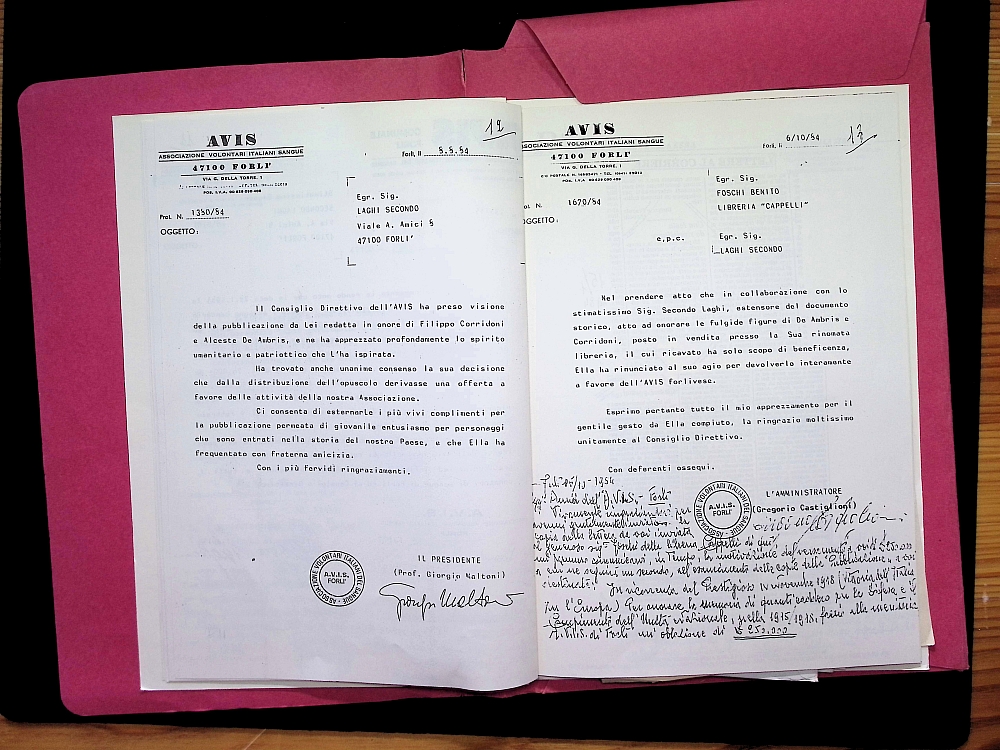 12
AVIS
ASSOCIAZIONE VOLONTARI ITALIANI SANGUE
47100 FORLI'
VIA G. DELLA TORRE, 1
Forlì, li 5.9.94
Prot. N. 1350/94
OGGETTO:
Egr. Sig.
LAGHI SECONDO
Viale A. Amici 5
47100 FORLI'
Il Consiglio Direttivo dell'AVIS ha preso visione
della pubblicazione da Lei redatta in onore di Filippo Corridoni
e Alceste De Ambris, e ne ha apprezzato profondamente lo spirito
umanitario e patriottico che L'ha ispirata.
Ha trovato anche unanime consenso la sua decisione
che dalla distribuzione dell'opuscolo derivasse una offerta a
favore delle attività della nostra Associazione.
Ci consenta di esternarLe i più vivi complimenti per
la pubblicazione permeata di giovanile entusiasmo per personaggi
che sono entrati nella storia del nostro Paese, e che Ella ha
frequentato con fraterna amicizia.
Con i più fervidi ringraziamenti.
ASSOCIAZIONE VOLONTARI ITALIANI DEL SANGUE
A.V.I.S.
FORLI'
IL PRESIDENTE
(Prof. Giorgio Maltoni)
Giorgio Maltoni
13
AVIS
ASSOCIAZIONE VOLONTARI ITALIANI SANGUE
47100 FORLI'
VIA G. DELLA TORRE, 1
Forlì, li 6/10/94
ot. N. 1670/94
OGGETTO:
Egr. Sig.
FOSCHI BENITO
LIBRERIA "CAPPELLI"
e,p.c. Egr. Sig.
LAGHI SECONDO
Nel prendere atto che in collaborazione con lo
stimatissimo Sig. Secondo Laghi, estensore del documento
storico, atto ad onorare le fulgide figure di De Ambris e
Corridoni, posto in vendita presso la Sua rinomata
libreria, il cui ricavato ha solo scopo di beneficenza,
Ella ha rinunciato al suo agio per devolverlo interamente
a favore dell'AVIS forlivese.
Esprimo pertanto tutto il mio apprezzamento per il
gentile gesto da Ella compiuto, la ringrazio moltissimo
unitamente al Consiglio Direttivo.
Con deferenti ossequi.
L'AMMINISTRATORE
(Gregorio Castiglioni)
ASSOCIAZIONE VOLONTARI ITALIANI DEL SANGUE
A.V.I.S.
FORLI'
Amici dell'A.V.I.S. - Forlì
copia della lettera da voi inviata
Cappelli di qui,
£ 250.000
IV novembre 1918
1915/1918,
A.V.I.S. di Forlì un'oblazione di £ 250.000